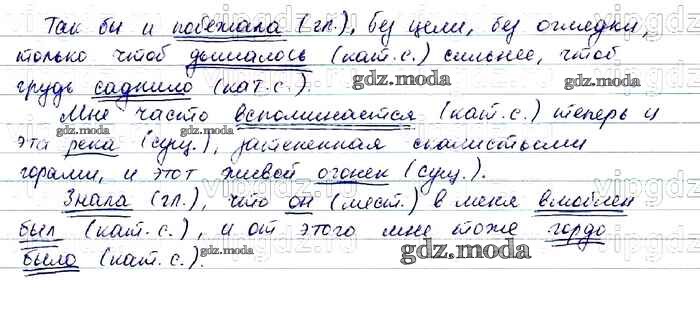 Так бы и побежала (гл.), без цели, без оглядки,
только чтоб дышалось (кат.с.) сильнее, чтоб
грудь саднило (кат.с.). gdz.moda
Мне часто вспоминается (кат.с.) теперь и
gdz.moda gdz.moda gdz.moda
эта река (сущ.), затененная скалистыми
горами, и этот живой огонек (сущ.).
Знала (гл.), что он (мест.) в меня влюблен
был (кат.с.), и от этого мне тоже гордо
было (кат.с.). gdz.moda gdz.moda